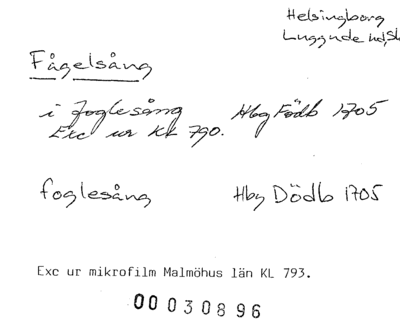 Helsingborg
Luggude hd, Sk
Fågelsång
i foglesång Hbg Födb 1705
Exc ur KL 790.
foglesång Hbg Dödb 1705
Exc ur mikrofilm Malmöhus län KL 793.
00030896